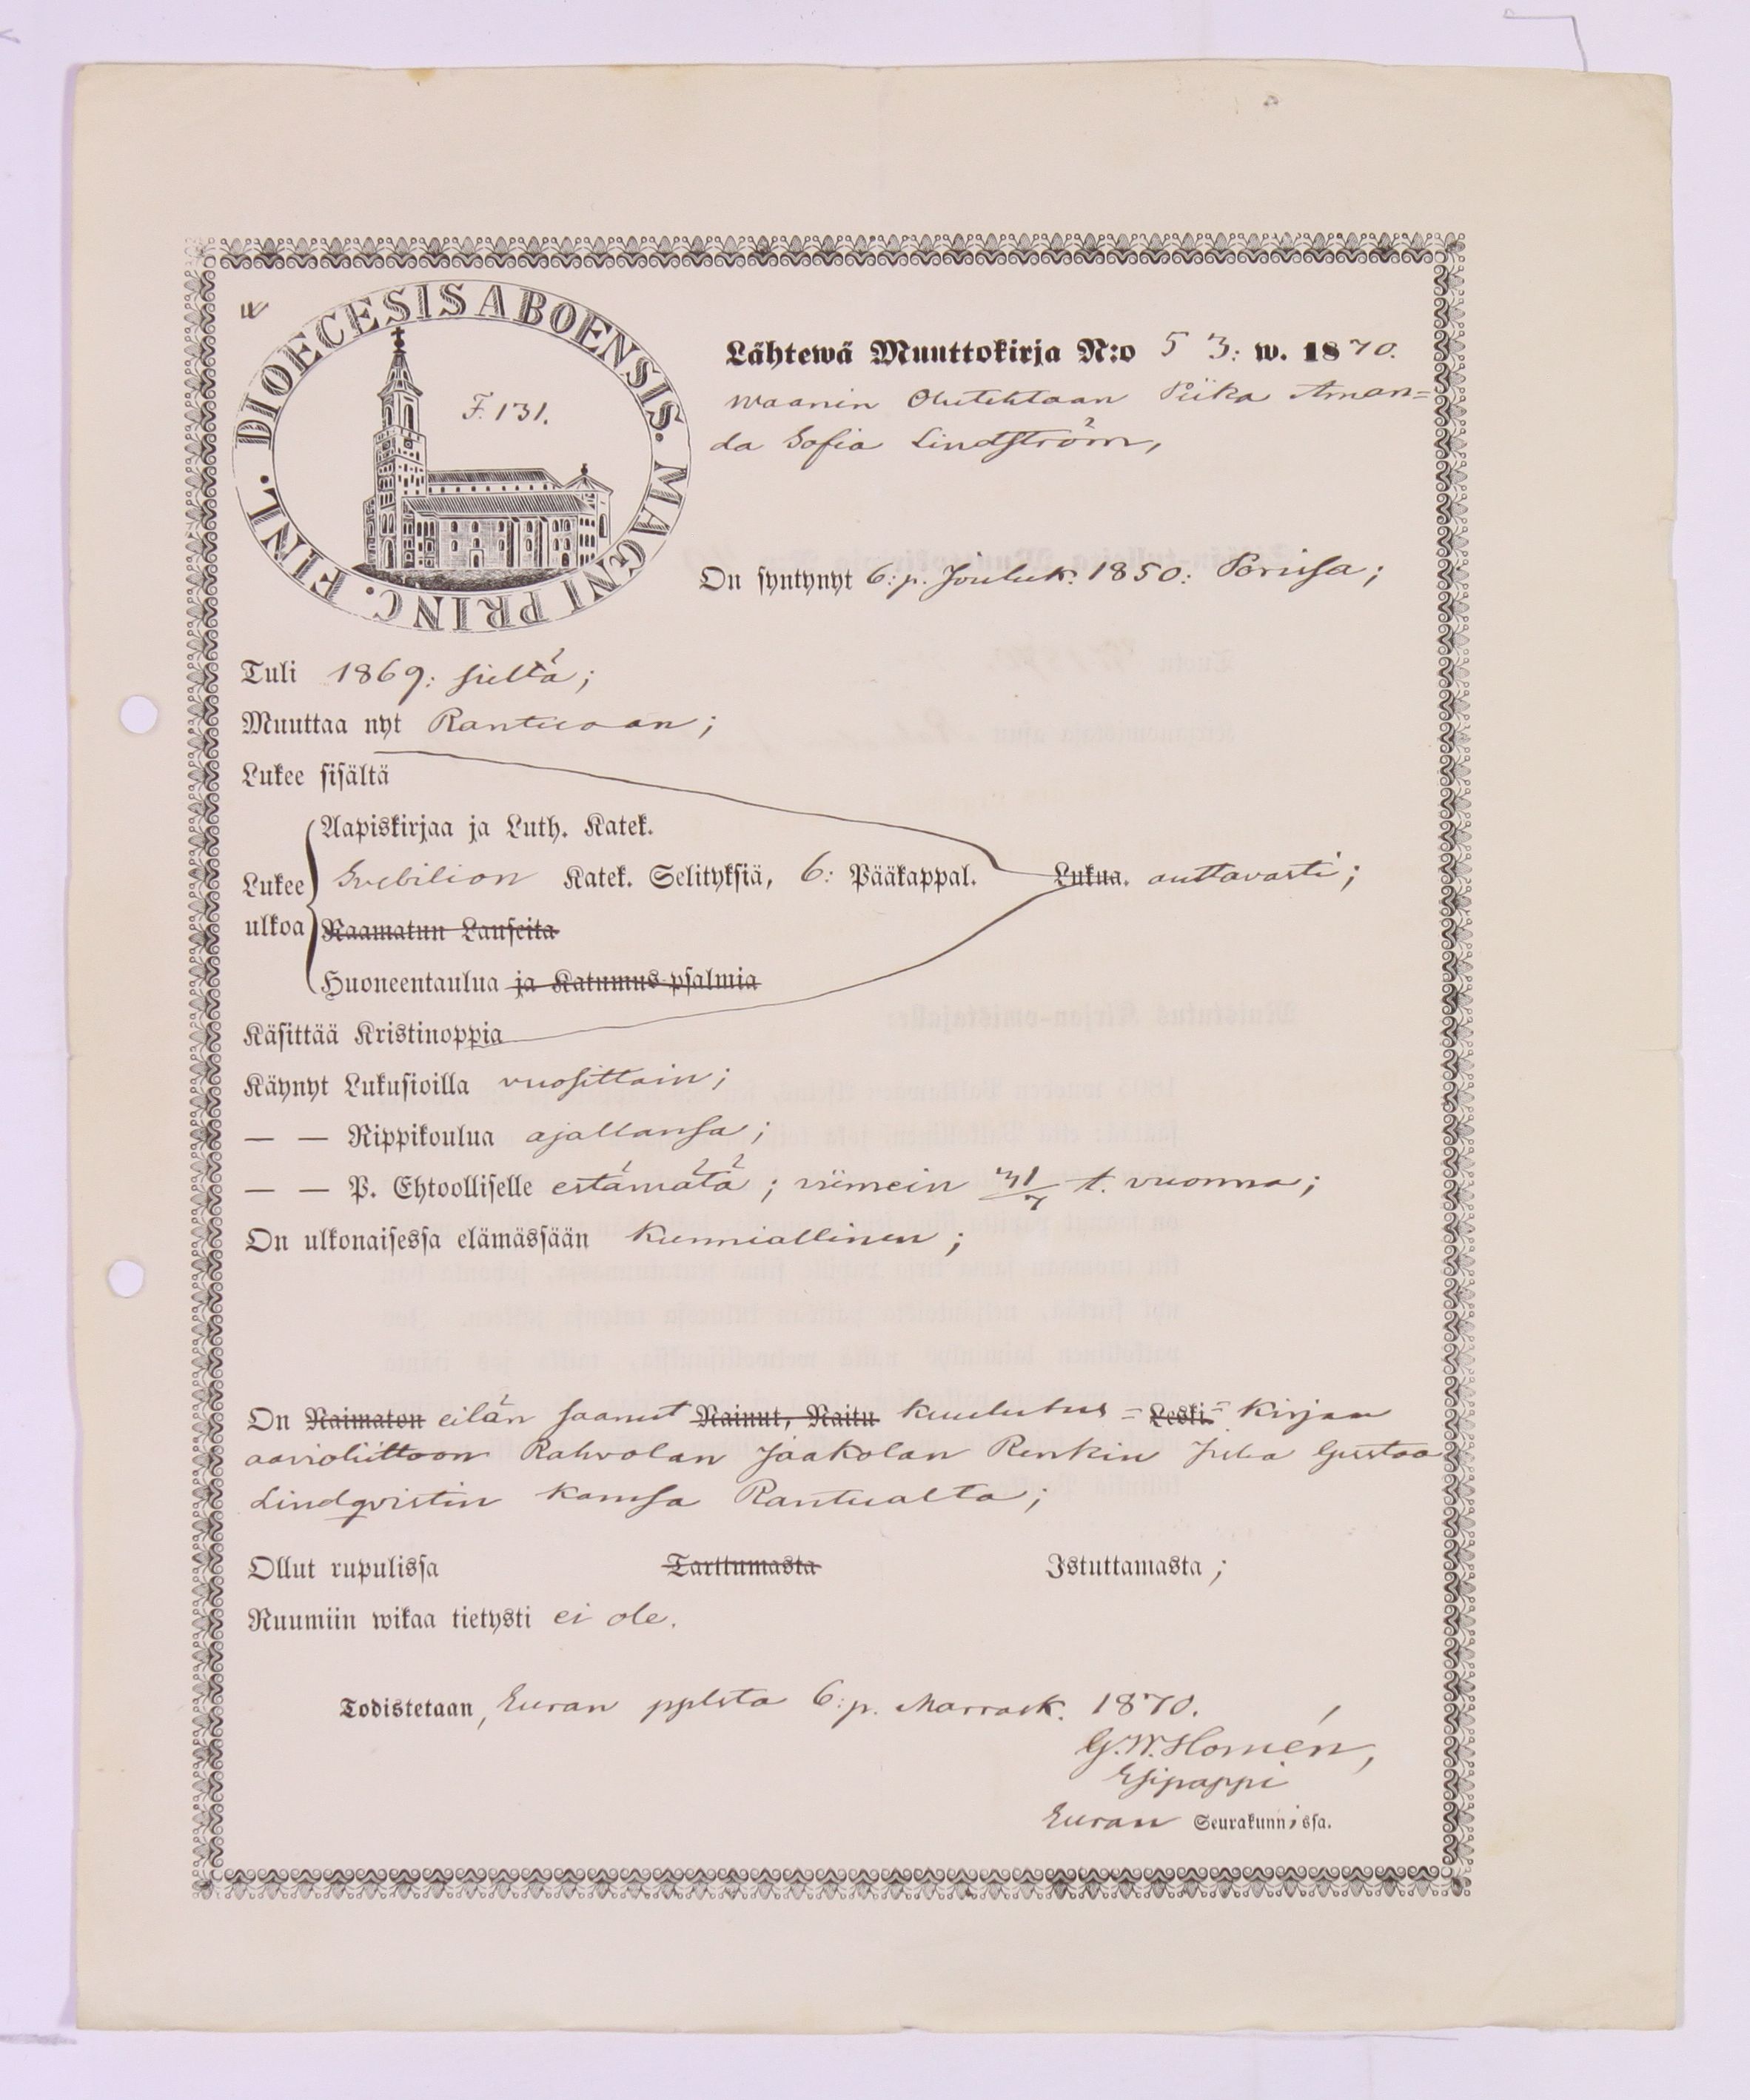 DIOECESIS ABOENSIS. MAGNI PRINC. FINL.
F. 131.
Lähtewä Muuttokirja N:o 53: w. 1870.
waanin Olutehtaan Piika Aman=
da Sofia Lindström,
On syntynyt 6:p. Jouluk. 1850: Porisa;
Tuli 1869: sieltä;
Muuttaa nyt
Lukee sisältä
Aapiskirjaa ja Luth. Katek.
Lukee Svebilion Katek. Selityksiä, 6: Pääkappal. Lukua. auttavasti;
ulkoa Raamatun Lauseita
Huoneentaulua ja Katumus-psalmia
Käsittää Kristinoppia
Käynyt Lukusioilla vuosittain;
— — Rippikoulua ajallansa;
— — P. Ehtoolliselle estämätä; viimein 31/7 t. vuonna;
On ulkonaisessa elämässään kunniallinen;
On Naimaton eilän saanut Nainut, Naitu kuulutus= Leski= kirjan
aavioliittoon Rahvolan Jaakolan Renkin Juha Gustaa
Lindqvistin kansa
Ollut rupulissa Tarttumasta Istuttamasta;
Ruumiin wikaa tietysti ei ole.
Todistetaan, Euran pplsta 6:p. Marrask. 1870.
G. W. Homén,
Esipappi
Euran Seurakunnissa.